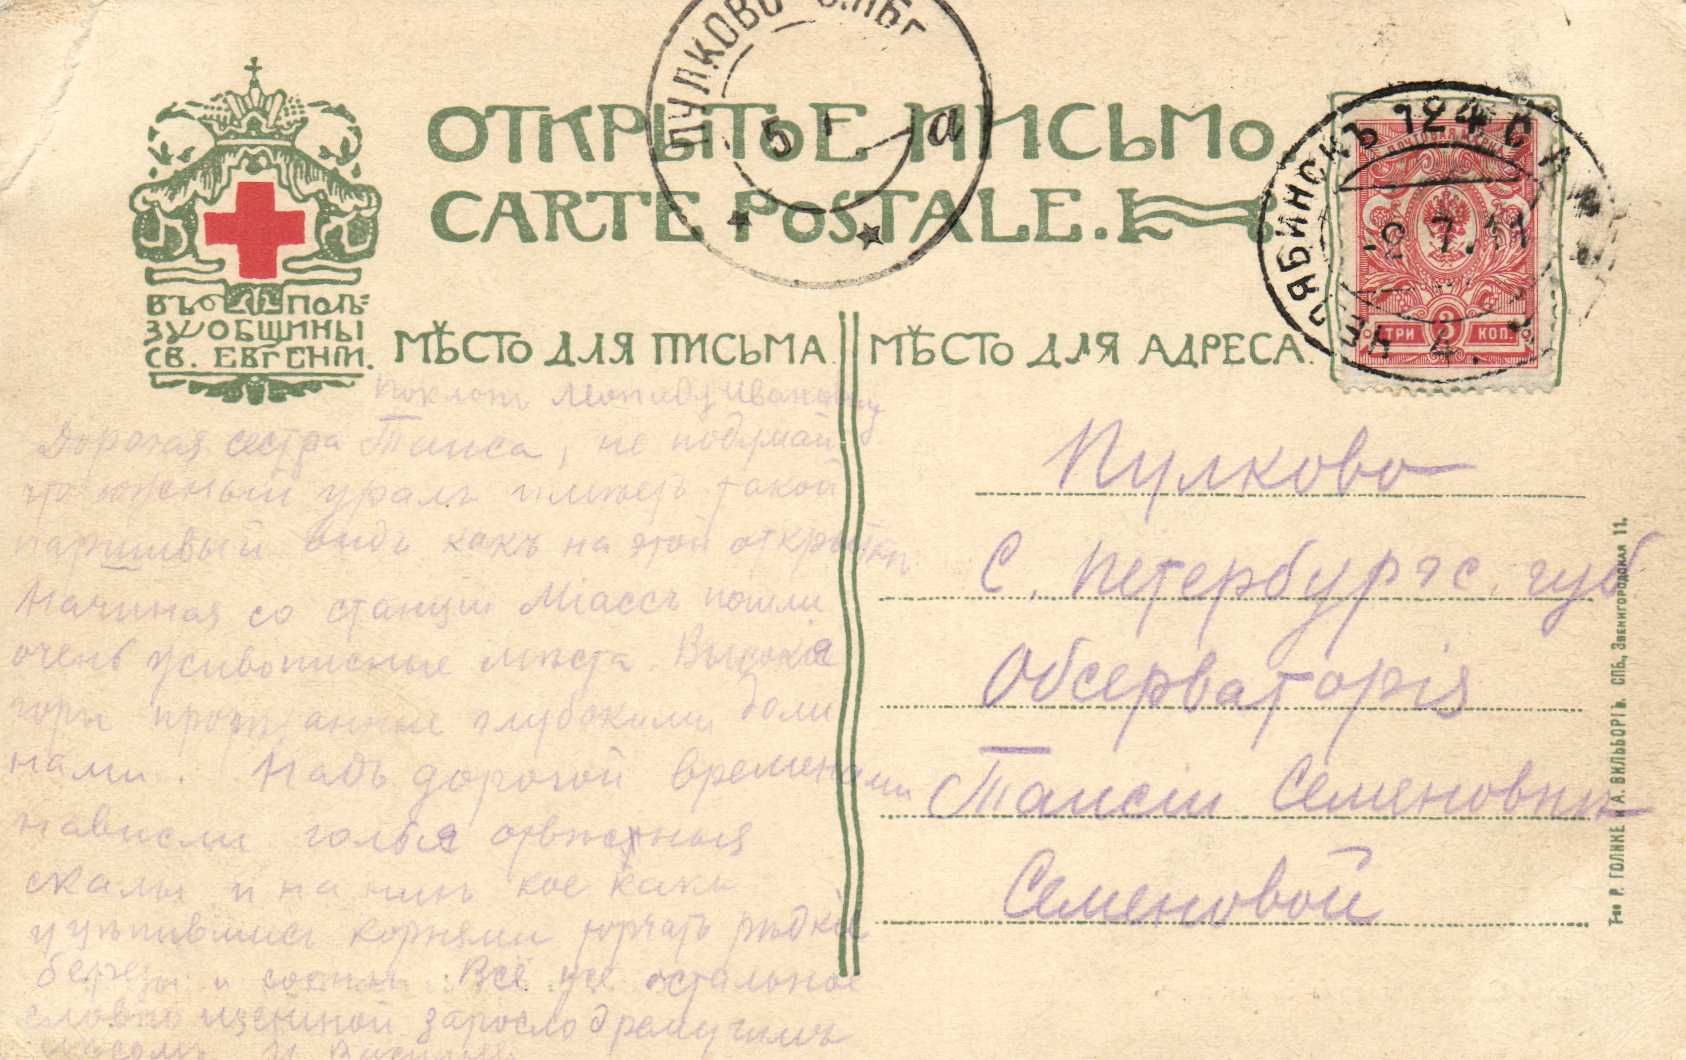 ОТКРЫТОЕ ПИСЬМО
CARTE POSTALE.
ПУЛКОВО С.ПБГ
5 а
ЧЕЛЯБИНСКЪ 124
-2 7.11
ТРИ 3 КОП.
ВЪ ПОЛЬ-
ЗУ ОБЩИНЫ
СВ. ЕВГЕНІИ.
МѢСТО ДЛЯ ПИСЬМА
МѢСТО ДЛЯ АДРЕСА.
Поклонъ Леониду Ивановичу
Дорогая сестра Таиса, не подумай
что южный уралъ имѣетъ такой
паршивый видъ какъ на этой открыткѣ
Начиная со станціи Міассъ пошли
очень живописные мѣста. Высокія
горы глубокими доли
нами. Надъ дорогой временами
нависли голыя отвѣсныя
скалы и на нихъ кое какъ
уцѣпившись корнями торчатъ рѣдкіе
березы и сосны. Всё же остальное
словно щетиной заросло дремучимъ
лѣсомъ. И
Пулково
С. Петербургс. губ
Обсерваторія
Таисіи Семеновнѣ
Семеновой
Т-во Р. ГОЛИКЕ и А. ВИЛЬБОРГЪ. СПБ., Звенигородская 11.